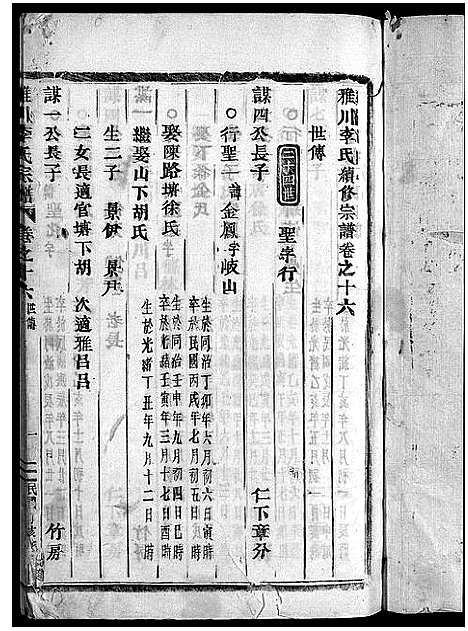 雅川李氏續修宗譜卷之十六
世傳
三十四世 聖字行
謀四公長子 仁下章分
○行聖子 諱金鳳字岐山
生於同治丁卯年六月初六日寅時
卒於民國丙戌年七月初五日戌時
○娶陳路塘徐氏
生於同治壬申年九月初四日巳時
卒於光緒壬寅年三月十七日酉時
繼娶山下胡氏
生於光緒丁丑年九月十二日 時
生二子 景伊 景尹
二女長適官塘下胡 次適雅呂呂
謀一公長子 竹房
雅川李氏宗譜 卷之十六 世傳 一